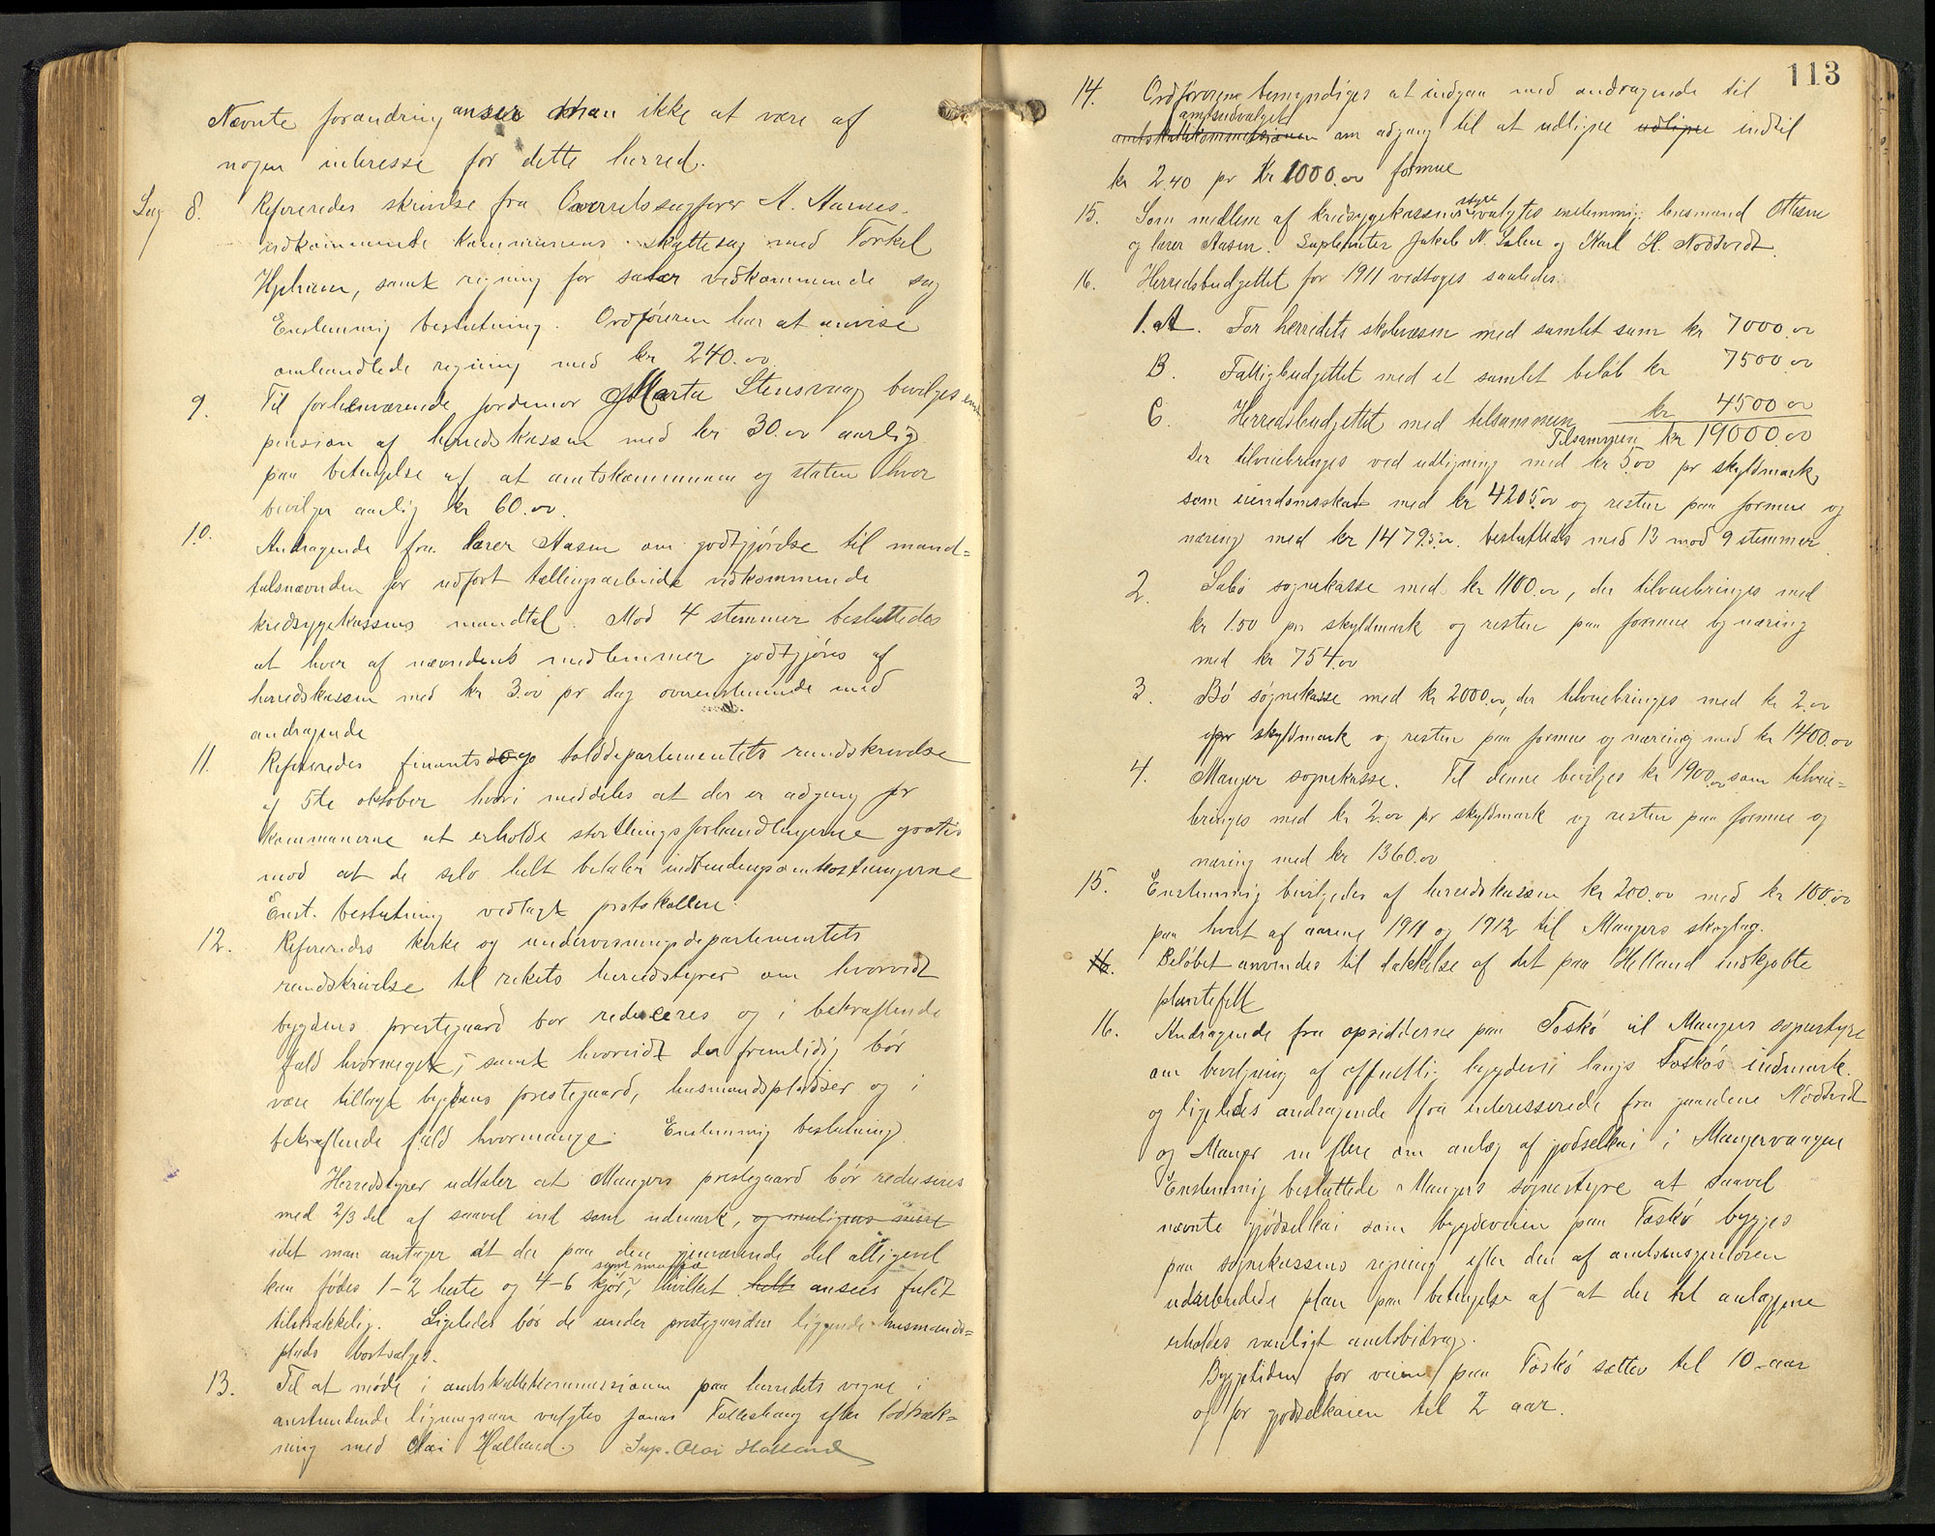 Nævnte forandring anser man ikke at være af
nogen interesse for dette herred.
Sag 8. Refereredes skrivelse fra Overretssagfører A. Aarnes
vedkommende kommunens skattesag med Torkel
samt regning for salær vedkommende sag
Enstemmig beslutning. Ordføreren har at anvise
omhandlede regning med kr 240.00
9. Til forhenværende jordemor Marta Stensvaag bevilges en
pension af herredskassen med kr 30.00 aarlig
paa betingelse af at amtskommunen og staten hver
bevilger aarlig kr 60.00.
10. Andragende fra lærer Aasen om godtgjörelse til mand=
talsnævnden for udført tællingsarbeide vedkommende
kredssygekassens mandtal. Mod 4 stemmer besluttedes
at hver af nævndens medlemmer godtgjöres af
herredskassen med kr 3.00 pr dag overenstemmende med
andragende
11. Refereredes finants og tolddepartementets rundskrivelse
af 5te oktober hvori meddeles at der er adgang for
kommunerne at erholde storthingsforhandlingerne gratis
mod at de selv helt betaler indbindingsomkostningerne
Enst. beslutning vedlagt protokollen.
12. Refereredes kirke og undervisningsdepartementets
rundskrivelse til rikets herredstyrer om hvorvidt
bygdens prestegaard bør reduceres og i bekræftende
fald hvormeget, samt hvorvidt der fremtidig bör
være tillagt bygdens prestegaard, husmandspladser og i
bekræftende fald hvormange. Enstemmig beslutning
Herredstyret udtaler at Mangers prestegaard bör reduseres
med 2/3 del af saavel ind som udmark, og muligens
idet man antager at der paa den gjenværende del alligevel
kan födes 1-2 heste og 4-6 kjör, samt smaafæ hvilket helt ansees fuldt
tilstrækkelig. Ligeledes bör de under prestegaarden liggende husmands=
plads bortsælges.
13. Til at möde i amtskattekommissionen paa herredets vegne i
anstundende ligningsaar valgtes Jonas Tolleshaug efter lodtræk=
ning med Olai Helland. Sup. Olai Helland
113
14. Ordføreren bemyndiges at indgaa med andragende til
amtsudvalget
amtskattekommissionen om adgang til at udligne udligne indtil
kr 2.40 pr kr 1000.00 formue
15. Som medlem af kredssygekassens styre valgtes enstemmig lensmand Ottesen
og lærer Aasen. Suplenter Jakob N. Sæbø og Karl H. Nödtvedt.
16. Herredsbudgettet for 1911 vedtoges saaledes:
1. A. For herredets skolevæsen med samlet sum kr 7000.00
B. Fattigbudgettet med et samlet belöb kr 7500.00
C. Herredsbudgettet med tilsammen kr 4500.00
Tilsammen kr 19000.00
Der tilveiebringes ved udligning med kr 5.00 pr skyldmark
som eiendomsskat med kr 4205.00 og resten paa formue og
næring med kr 14795.00. besluttedes med 13 mod 9 stemmer
2. Sæbö sognekasse med kr 1100.00, der tilveiebringes med
kr 1.50 pr skyldmark og resten paa formue og næring
med kr 754.00
3. Bö sognekasse med kr 2000.00, der tilveiebringes med kr 2.00
pr skyldmark og resten paa formue og næring med kr 1400.00
4. Manger sognekasse. Til denne bevilges kr 1900.00 som tilveie=
bringes med kr 2.00 pr skyldmark og resten paa formue og
næring med kr 1360.00
15. Enstemmig bevilgedes af herredskassen kr 200.00 med kr 100.00
paa hvert af aarene 1911 og 1912 til Mangers skoglag.
16. Belöbet anvendes til dækkelse af det paa Helland indkjöbte
plantefelt
16. Andragende fra opsidderne paa Toskö til Mangers sognestyre
om bevilgning af offentlig bygdevei langs Toskös indmark.
og ligeledes andragende fra interesserede fra gaardene Nödtvedt
og Manger m flere om anlæg af gjødselkai i Mangervaagen
Enstemmig besluttede Mangers sognestyre at saavel
nævnte gjödselkai som bygdeveien paa Toskö bygges
paa sognekassens regning efter den af amtsingeniören
udarbeidede plan paa betingelse af at der til anlæggene
erholdes vanligt amtsbidrag.
Byggetiden for veien paa Toskö sættes til 10 aar
og for gjødselkaien til 2 aar.